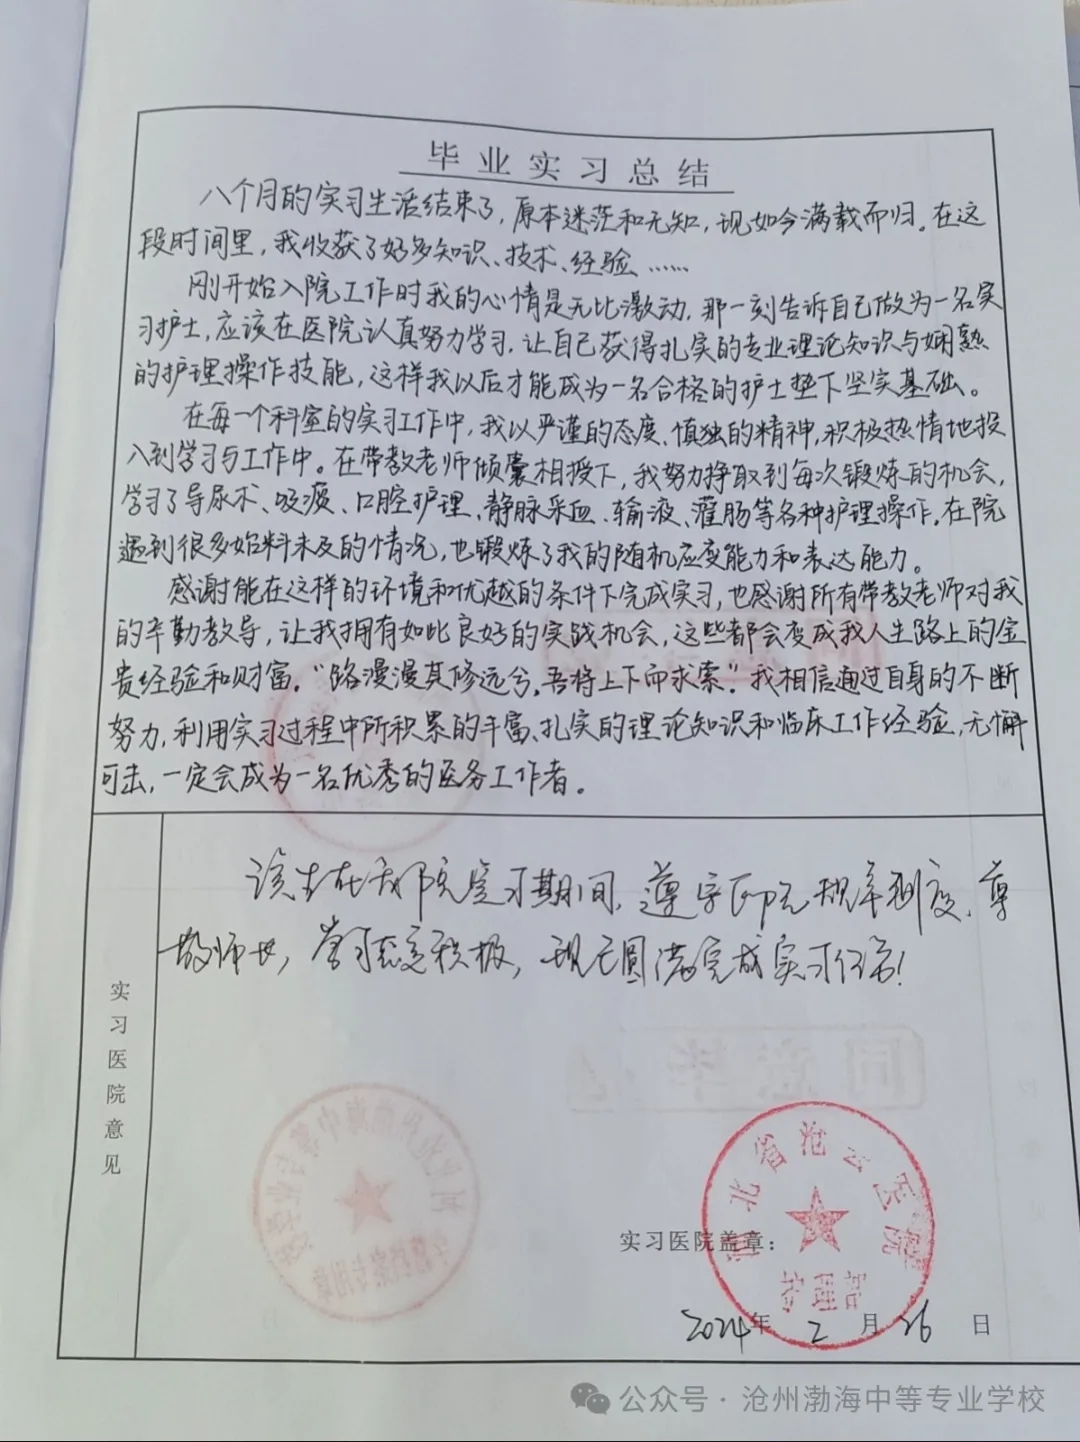 毕业实习总结
八个月的实习生活结束了，原本迷茫和无知，现如今满载而归。在这
段时间里，我收获了好多知识、技术、经验……
刚开始入院工作时我的心情是无比激动，那一刻告诉自己做为一名实
习护士，应该在医院认真努力学习，让自己获得扎实的专业理论知识与娴熟
的护理操作技能，这样我以后才能成为一名合格的护士垫下坚实基础。
在每一个科室的实习工作中，我以严谨的态度、慎独的精神，积极热情地投
入到学习与工作中。在带教老师倾囊相授下，我努力挣取到每次锻炼的机会，
学习了导尿术、吸痰、口腔护理、静脉采血、输液、灌肠等各种护理操作。在院
遇到很多始料未及的情况，也锻炼了我的随机应变能力和表达能力。
感谢能在这样的环境和优越的条件下完成实习，也感谢所有带教老师对我
的辛勤教导，让我拥有如此良好的实战机会，这些都会变成我人生路上的宝
贵经验和财富。“路漫漫其修远兮，吾将上下而求索”。我相信通过自身的不断
努力，利用实习过程中所积累的丰富、扎实的理论知识和临床工作经验，无懈
可击，一定会成为一名优秀的医务工作者。
该生在我院实习期间，遵守医院规章制度、尊
敬师长，学习态度积极，现已圆满完成实习任务！
实习医院意见
同意毕业
河北省沧云医院
实习医院盖章：
2024年2月26日
公众号·沧州渤海中等专业学校